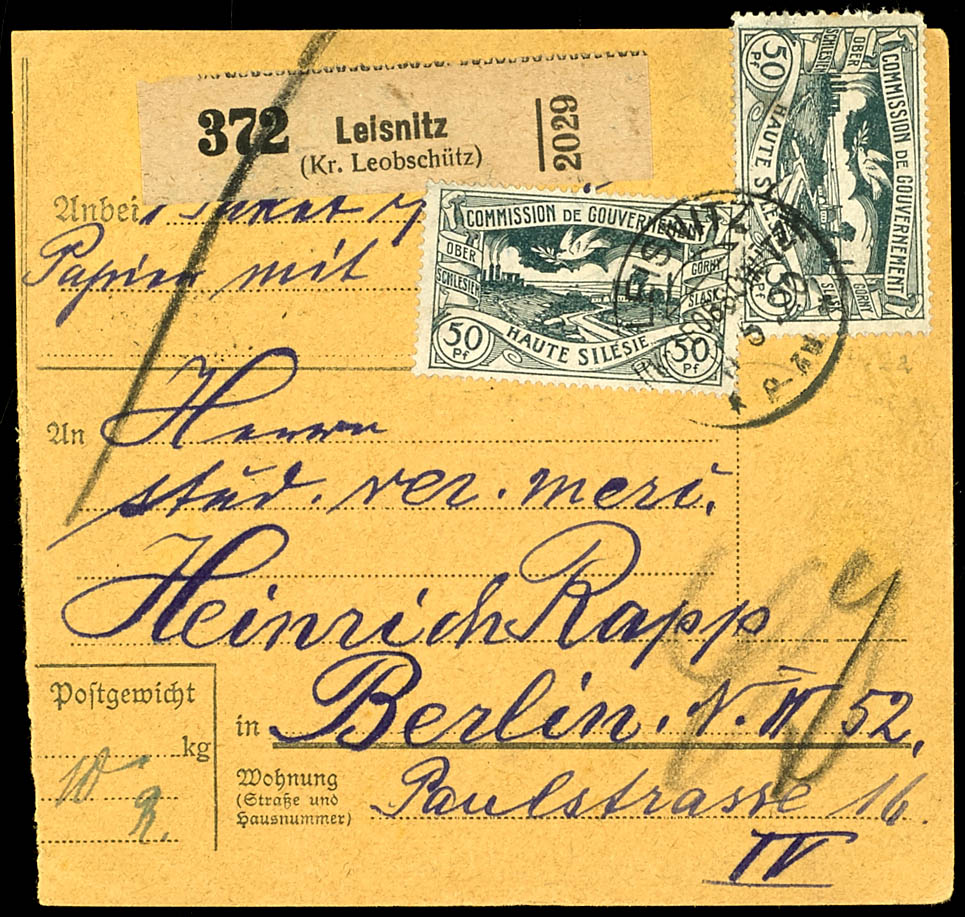 372 Leisnitz
(Kr. Leobschütz)
2029
COMMISSION DE GOUVERNEMENT
OBER
SCHLESIEN
GÓRNY
ŚLĄSK
HAUTE SILÉSIE
50 Pf
50 Pf
COMMISSION DE GOUVERNEMENT
OBER
SCHLESIEN
GÓRNY
HAUTE
50 Pf
Anbei
Papier mit
An Herrn
stud. rer. merc.
Heinrich Rapp
in Berlin. N. W 52.
Postgewicht
kg
10
Wohnung
(Straße und
Hausnummer)
Paulstrasse 16.
IV